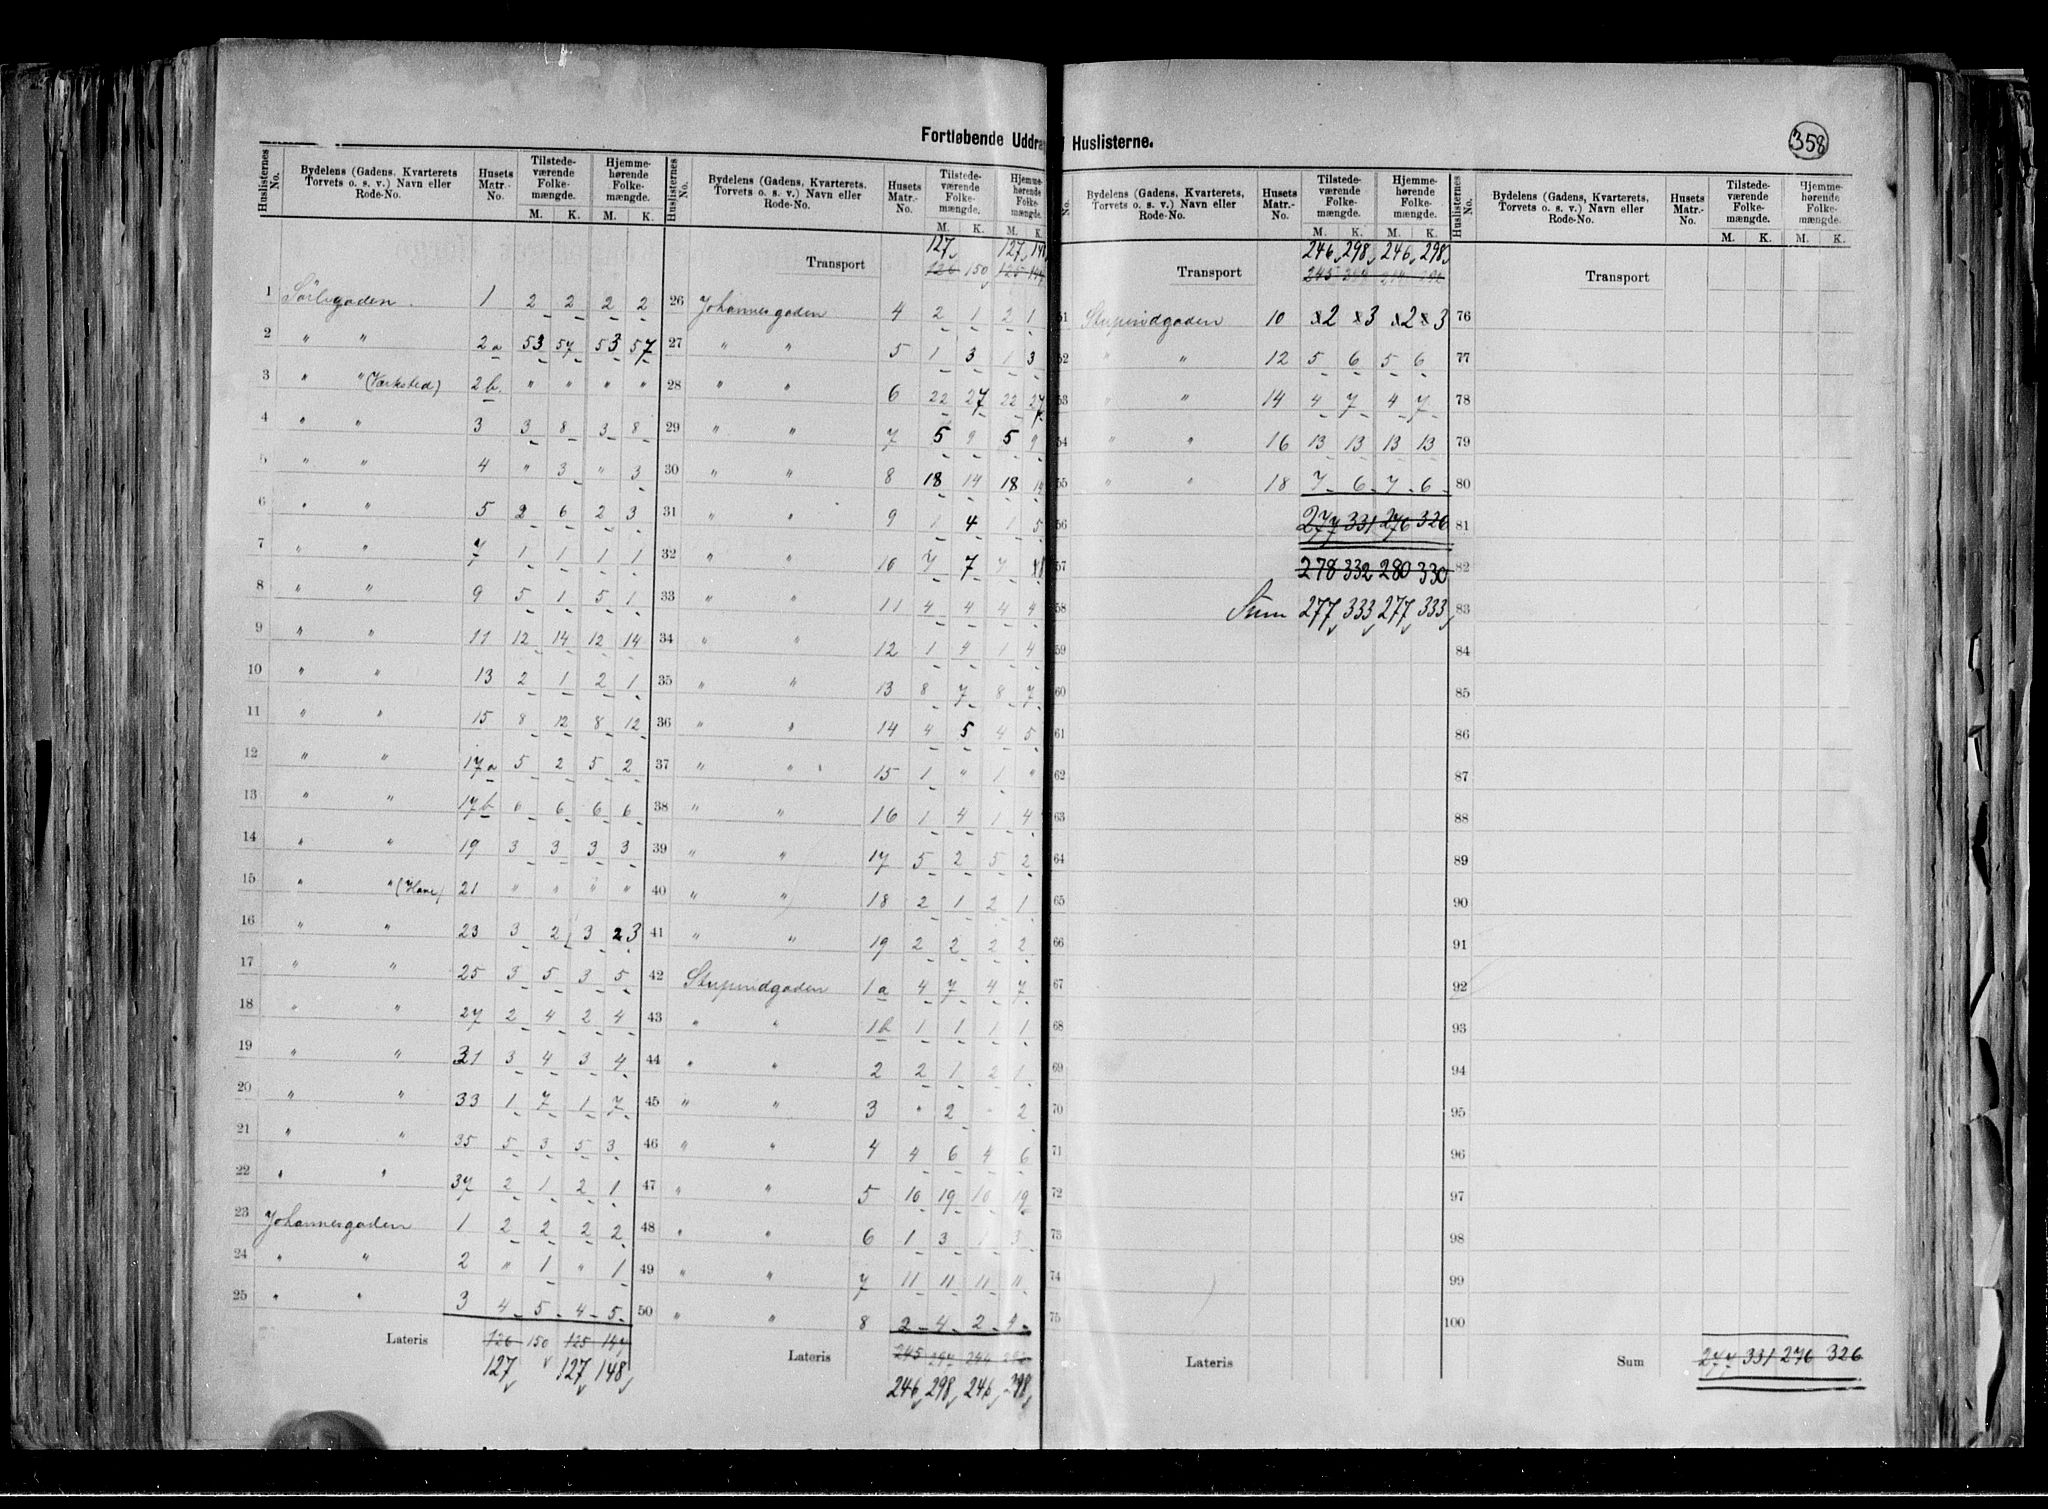 Fortløbende Uddra Huslisterne.
358
Huslisternes No. Bydelens (Gadens, Kvarterets Torvets o. s. v.) Navn eller Rode-No. Husets Matr.-No. Tilstedeværende Folkemængde. M. K. Hjemmehørende Folkemængde. M. K.
1 Sörligaden 1 2 2 2 2
2 " " 2a 53 57 53 57
3 " " (Værksted) 2b " " " "
4 " " 3 3 8 3 8
5 " " 4 " 3 " 3
6 " " 5 2 6 2 3
7 " " 7 1 1 1 1
8 " " 9 5 1 5 1
9 " " 11 12 14 12 14
10 " " 13 2 1 2 1
11 " " 15 8 12 8 12
12 " " 17a 5 2 5 2
13 " " 17b 6 6 6 6
14 " " 19 3 3 3 3
15 " " (Have) 21 " " " "
16 " " 23 3 2 3 2 3
17 " " 25 3 5 3 5
18 " " 27 2 4 2 4
19 " " 31 3 4 3 4
20 " " 33 1 7 1 7
21 " " 35 5 3 5 3
22 " " 37 2 1 2 1
23 Johannesgaden 1 2 2 2 2
24 " " 2 " 1 " 1
25 " " 3 4 5 4 5
Lateris 126 150 125 147
127 127 148
Huslisternes No. Bydelens (Gadens, Kvarterets, Torvets o. s. v.) Navn eller Rode-No. Husets Matr.-No. Tilstedeværende Folkemængde. M. K. Hjemmehørende Folkemængde. M. K.
127 127 148
Transport 126 150 125 147
26 Johannesgaden 4 2 1 2 1
27 " " 5 1 3 1 3
28 " " 6 22 27 22 27
29 " " 7 5 9 5 9
30 " " 8 18 14 18 14
31 " " 9 1 4 1 5
32 " " 10 7 7 7
33 " " 11 4 4 4 4
34 " " 12 1 4 1 4
35 " " 13 8 7 8 7
36 " " 14 4 5 4 5
37 " " 15 1 " 1 "
38 " " 16 1 4 1 4
39 " " 17 5 2 5 2
40 " " 18 2 1 2 1
41 " " 19 2 2 2 2
42 Stupindgaden 1a 4 7 4 7
43 " " 1b 1 1 1 1
44 " " 2 2 1 2 1
45 " " 3 " 2 " 2
46 " " 4 4 6 4 6
47 " " 5 10 19 10 19
48 " " 6 1 3 1 3
49 " " 7 11 11 11 11
50 " " 8 2 4 2
Lateris 245 297 244 292
246 298 246 298
No. Bydelens (Gadens, Kvarterets, Torvets o. s. v.) Navn eller Rode-No. Husets Matr.-No. Tilstedeværende Folkemængde. M. K. Hjemmehørende Folkemængde. M. K.
246 298 246 298
Transport 245 297 244 292
51 Stupindgaden 10 2 3 2 3
52 " " 12 5 6 5 6
53 " " 14 4 7 4 7
54 " " 16 13 13 13 13
55 " " 18 7 6 7 6
56 277 331 276 326
57 278 332 280 330
58 Sum 277 333 277 333
59
60
61
62
63
64
65
66
67
68
69
70
71
72
73
74
75
Lateris
Huslisternes No. Bydelens (Gadens, Kvarterets, Torvets o. s. v.) Navn eller Rode-No. Husets Matr.-No. Tilstedeværende Folkemængde. M. K. Hjemmehørende Folkemængde. M. K.
Transport
76
77
78
79
80
81
82
83
84
85
86
87
88
89
90
91
92
93
94
95
96
97
98
99
100
Sum 277 331 276 326